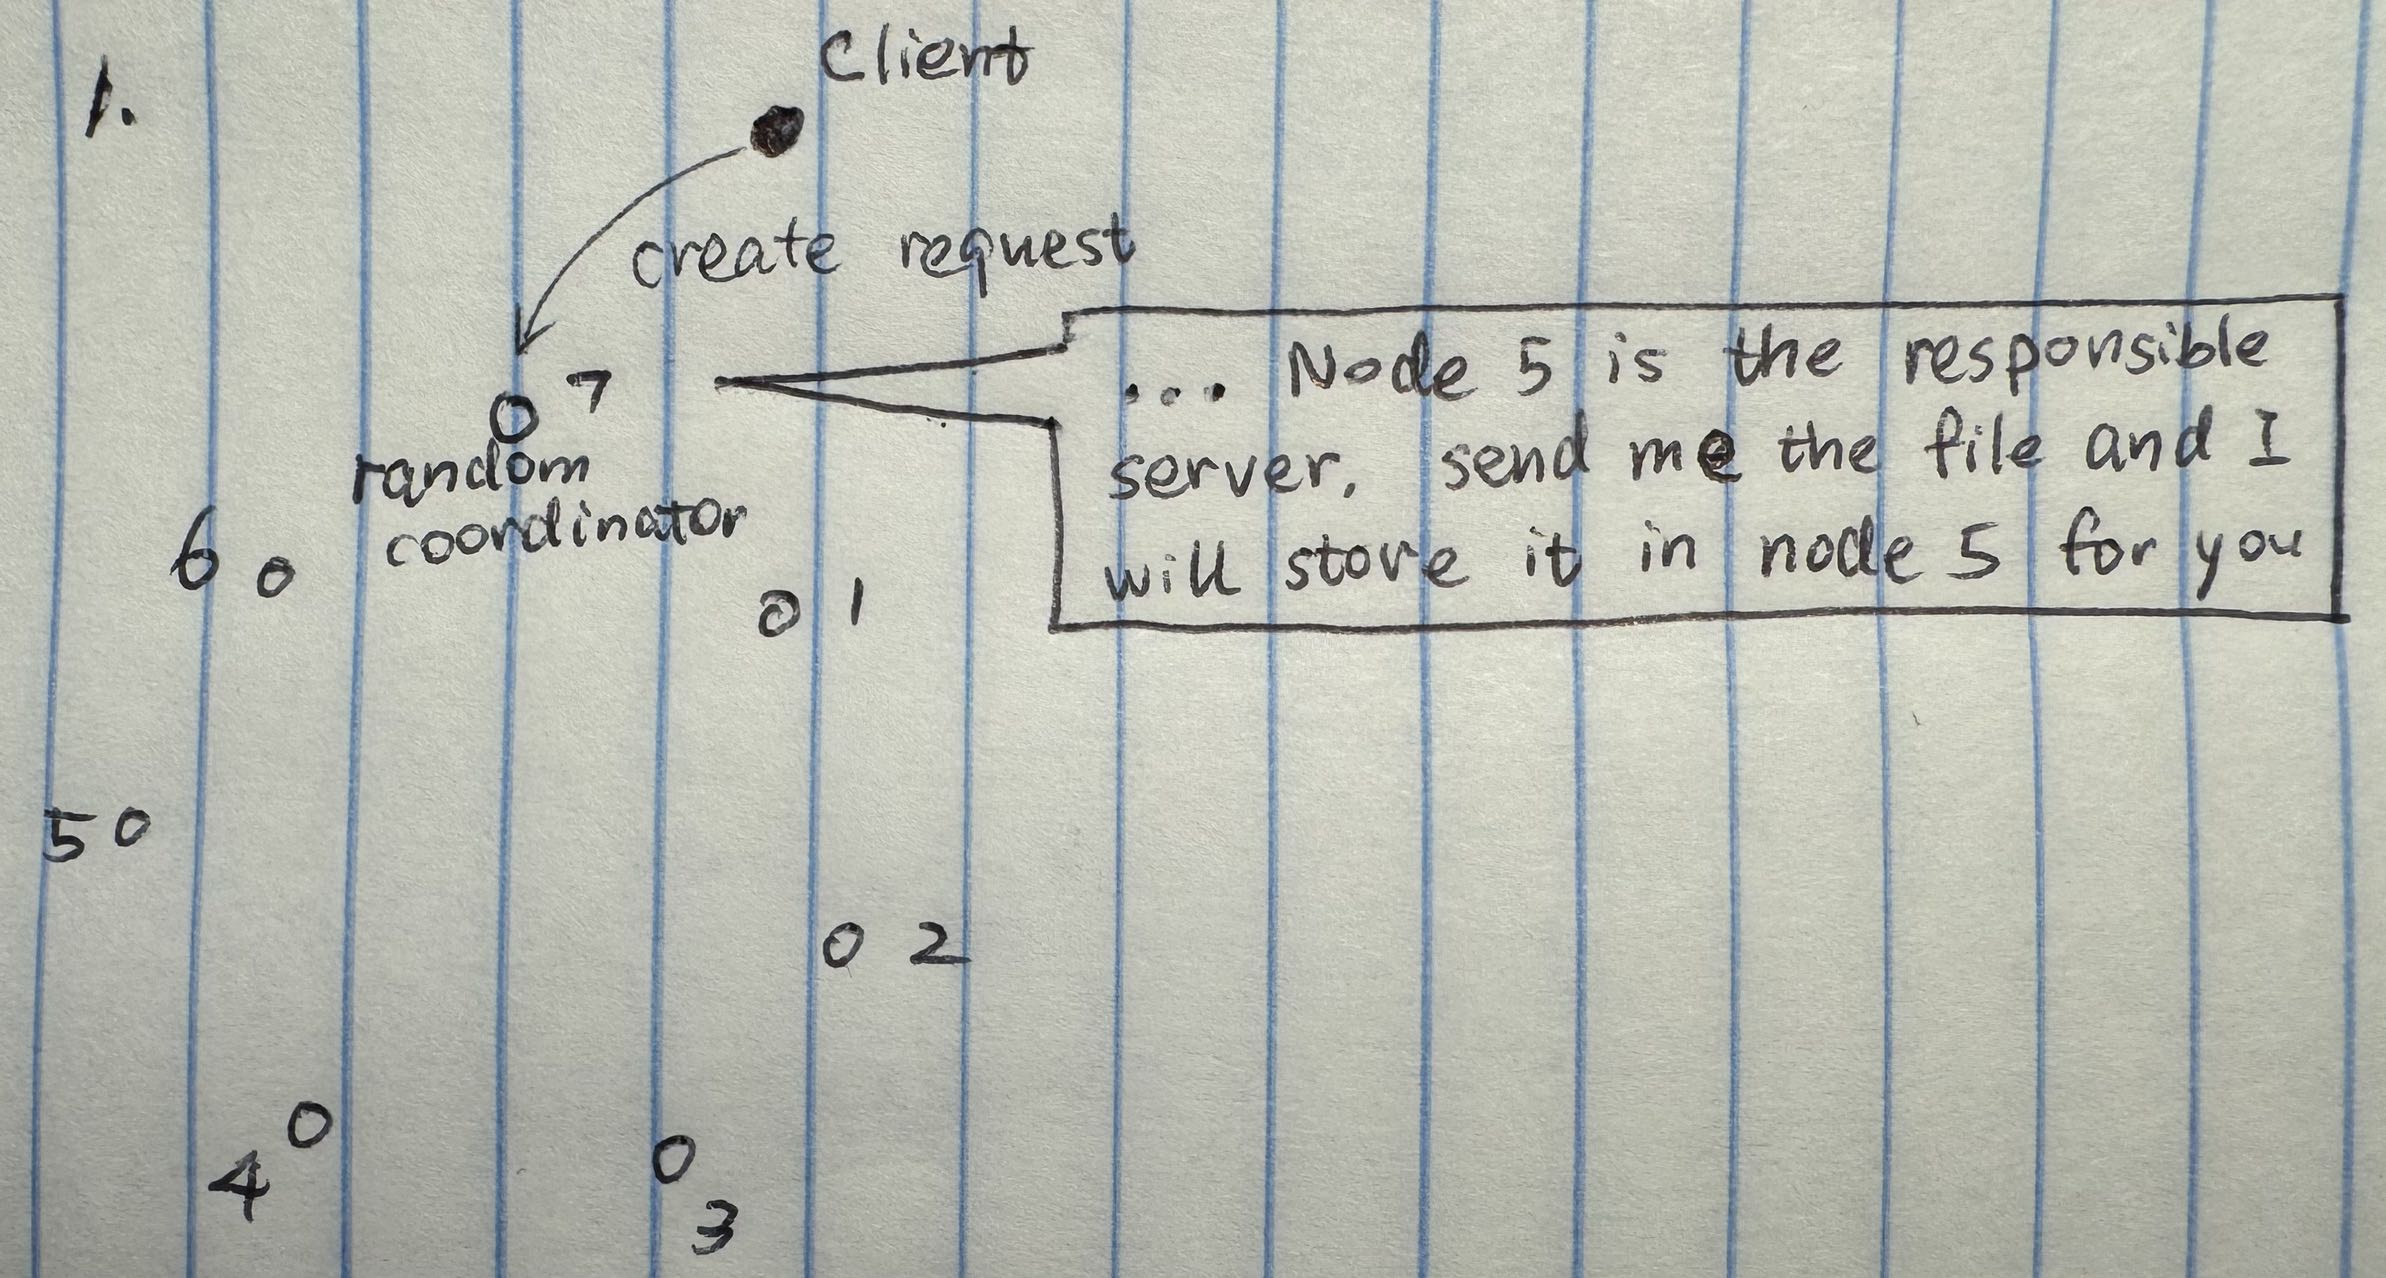 1.
Client
create request
7
random
coordinator
... Node 5 is the responsible
server, send me the file and I
will store it in node 5 for you
6
1
5
2
4
3